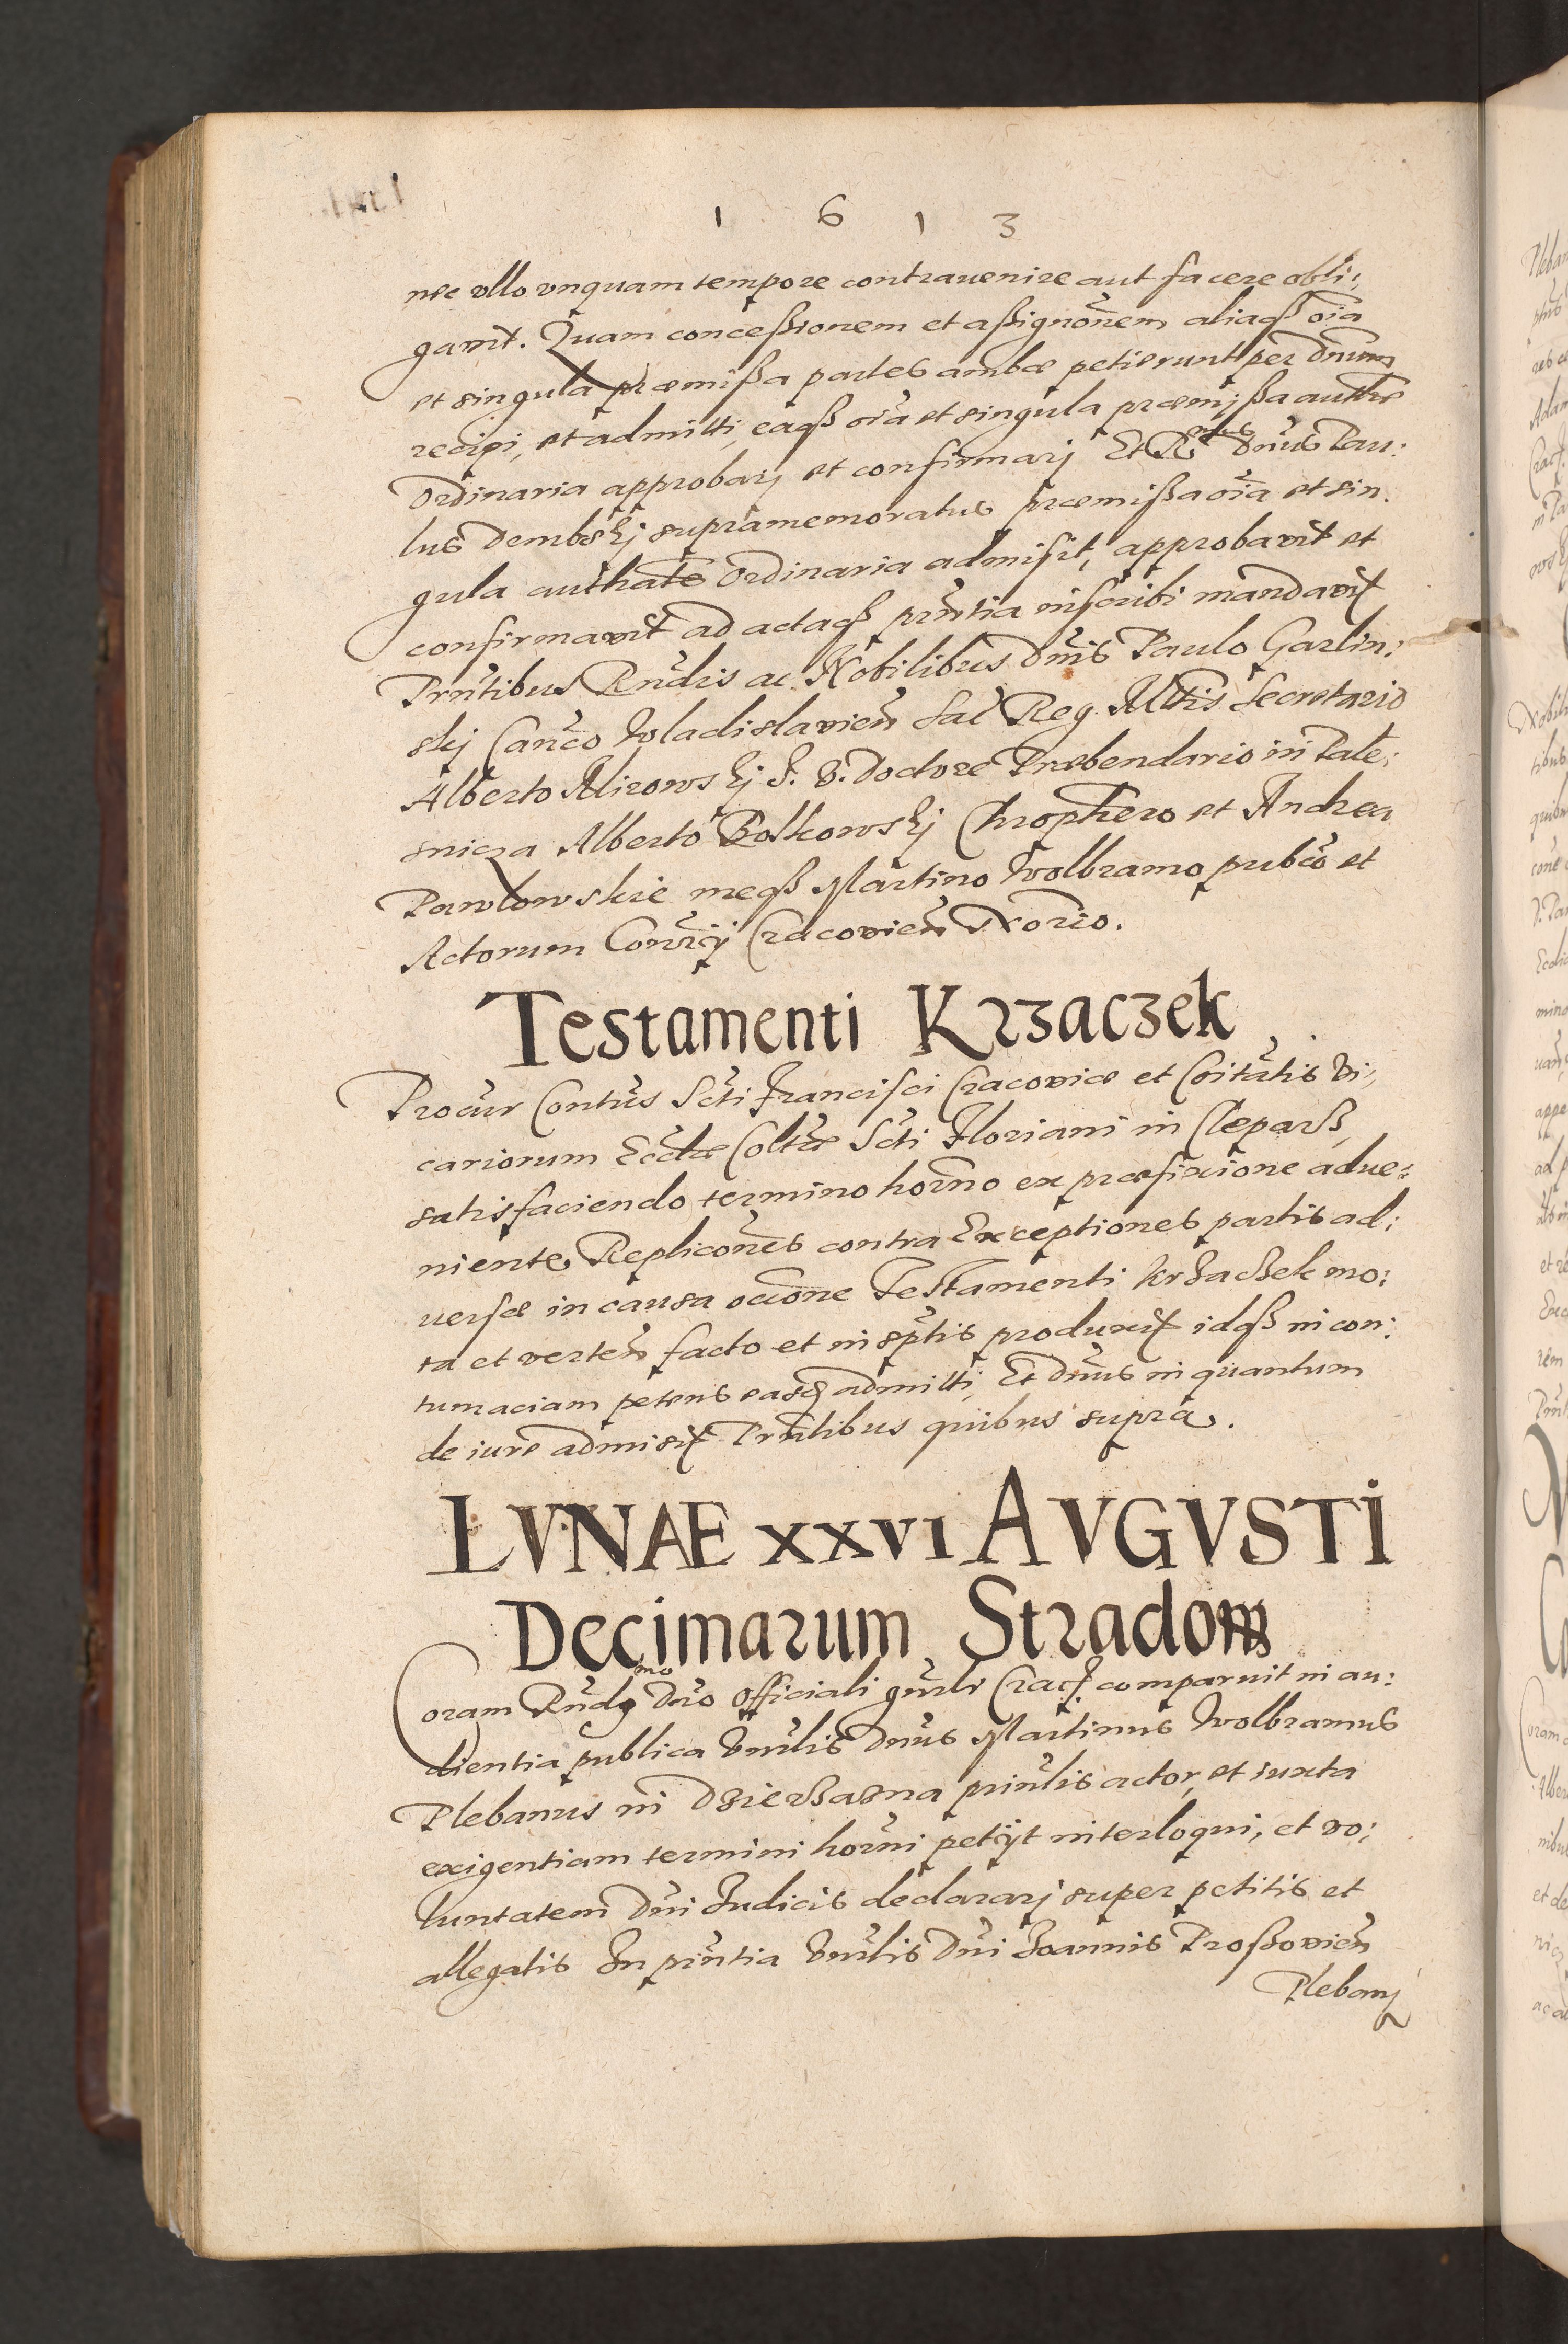 1 6 1 3
nec ullo vnquam tempore contrauenire aut facere obli:
gavit. Quam conceßionem et aßignōnem aliaqß oīa
et singula præmißa partes ambæ petierunt per Dnum
recipi, et admitti, eaqß oīa et singula præmißa authte
Ordinaria approbarj et confirmarj Et R Dnus Pau:
lus Dembskj supramemoratus præmißa oīa et sin:
gula authate Ordinaria admisit, approbavit et
confirmavit ad actaqß pñtia inscribi mandavit
Pñtibus Rndis ac Nobilibus Dnis Paulo Garlin:
skj Canco Wladislavien Sac Reg. Mttis Secretario
Alberto Mirowskj J. V. Doctore Præbendario in Pale:
snicza Alberto Bolkowskj Chrophero et Andrea
Pawlowskie meqß Martino Wolbramo pubco et
Actorum Consrij Cracovien Norio.
Testamenti Krzaczek
Procur Contus Scti Francisci Cracoviæ et Coitatis Vi:
cariorum Ecclæ Coltæ Scti Floriani in Cleparß,
satisfaciendo termino horno ex præfixione adue:
niente, Replicones contra Exceptiones partis ad:
uersæ in causa occione Testamenti Krzaczek mo:
ta et verten facto et in sptis produxit idqß in con:
tumaciam petens easq admitti, Et Dnus in quantum
de iure admisit Pñtibus quibus supra.
LVNAE XXVI AVGVSTI
Decimarum Stradom
Coram Rndo Dno Officiali gnrli Crac comparuit in au:
dientia publica Vnrlis Dnus Martinus Wolbramus
Plebanus in Dzierßazna prinlis actor, et iuxta
exigentiam termini horni petijt interloqui, et vo:
luntatem Dni Iudicis declararj super petitis et
allegatis In pñtia Vnrlis Dni Joannis Proßovien
Plebanj